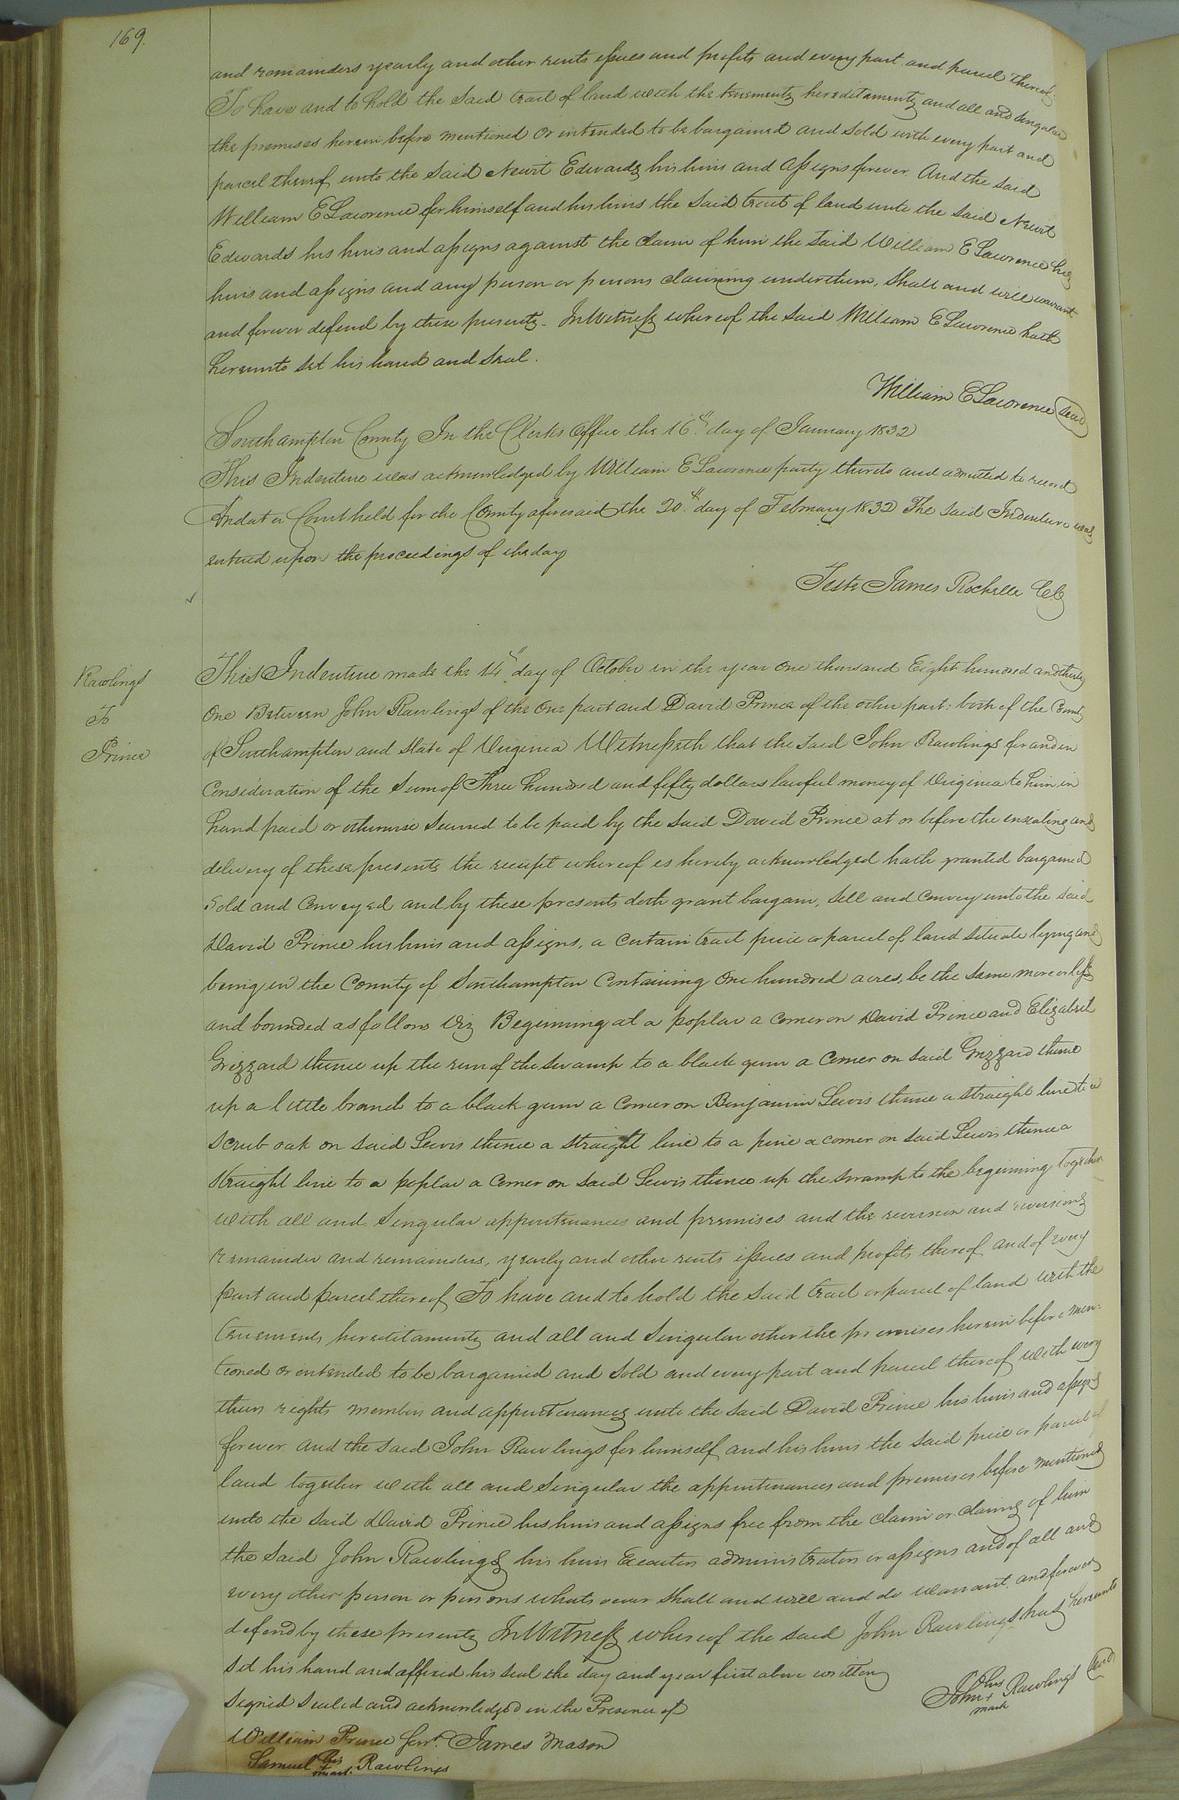 169.
and remainders yearly and other rents issues and profits and every part and parcel thereof
To have and to hold the said tract of land with the tenements hereditaments and all and singular
the premises herein before mentioned or intended to be bargained and sold with every part and
parcel thereof unto the said Newit Edwards his heirs and assigns forever And the said
William E Lawrence for himself and his heirs the said tract of land unto the said Newit
Edwards his heirs and assigns against the claim of him the said William E Lawrence his
heirs and assigns and any person or persons claiming under them, shall and will warrant
and forever defend by these presents. In Witness whereof the said William E Lawrence hath
hereunto set his hand and seal.
William E Lawrence Seal
Southampton County In the Clerks Office the 16th day of January 1832
This Indenture was acknowledged by William E Lawrence party thereto and admitted to record
And at a Court held for the County aforesaid the 20th day of February 1832 The said Indenture was
entered upon the proceedings of the day
Teste James Rochelle CC
Rawlings
To
Prince
This Indenture made the 14th day of October in the year one thousand Eight hundred and thirty
One Between John Rawlings of the one part and David Prince of the other part: both of the County
of Southampton and State of Virginia Witnesseth that the said John Rawlings for and in
Consideration of the Sum of Three hundred and fifty dollars lawful money of Virginia to him in
hand paid or otherwise secured to be paid by the said David Prince at or before the ensealing and
delivery of these presents the receipt whereof is hereby acknowledged hath granted bargained
sold and conveyed and by these presents doth grant bargain, sell and convey unto the said
David Prince his heirs and assigns, a certain tract piece or parcel of land situate lying and
being in the County of Southampton Containing One hundred acres, be the same more or less
and bounded as follows Viz Beginning at a poplar a corner on David Prince and Elizabeth
Grizzard thence up the run of the swamp to a black gum a corner on said Grizzard thence
up a little branch to a black gum a corner on Benjamin Lewis thence a straight line to a
scrub oak on said Lewis thence a straight line to a pine a corner on said Lewis thence a
straight line to a poplar a corner on said Lewis thence up the swamp to the beginning together
with all and singular appurtenances and premises and the reversion and reversions
remainder and remainders, yearly and other rents issues and profits thereof and of every
part and parcel thereof To have and to hold the said tract or parcel of land with the
tenements, hereditaments and all and singular other the premises herein before men-
tioned or intended to be bargained and sold and every part and parcel thereof with every
their rights members and appurtenances unto the said David Prince his heirs and assigns
forever And the said John Rawlings for himself and his heirs the said piece or parcel of
land together with all and singular the appurtenances and premises before mentioned
unto the said David Prince his heirs and assigns free from the claim or claims of him
the said John Rawlings his heirs Executors administrators or assigns and of all and
every other person or persons whatsoever shall and will and do warrant and forever
defend by these presents In Witness whereof the said John Rawlings hath hereunto
set his hand and affixed his seal the day and year first above written
Signed Sealed and acknowledged in the Presence of
John his + mark Rawlings Seal
William Prince Senr. James Mason
Samuel his + mark Rawlings